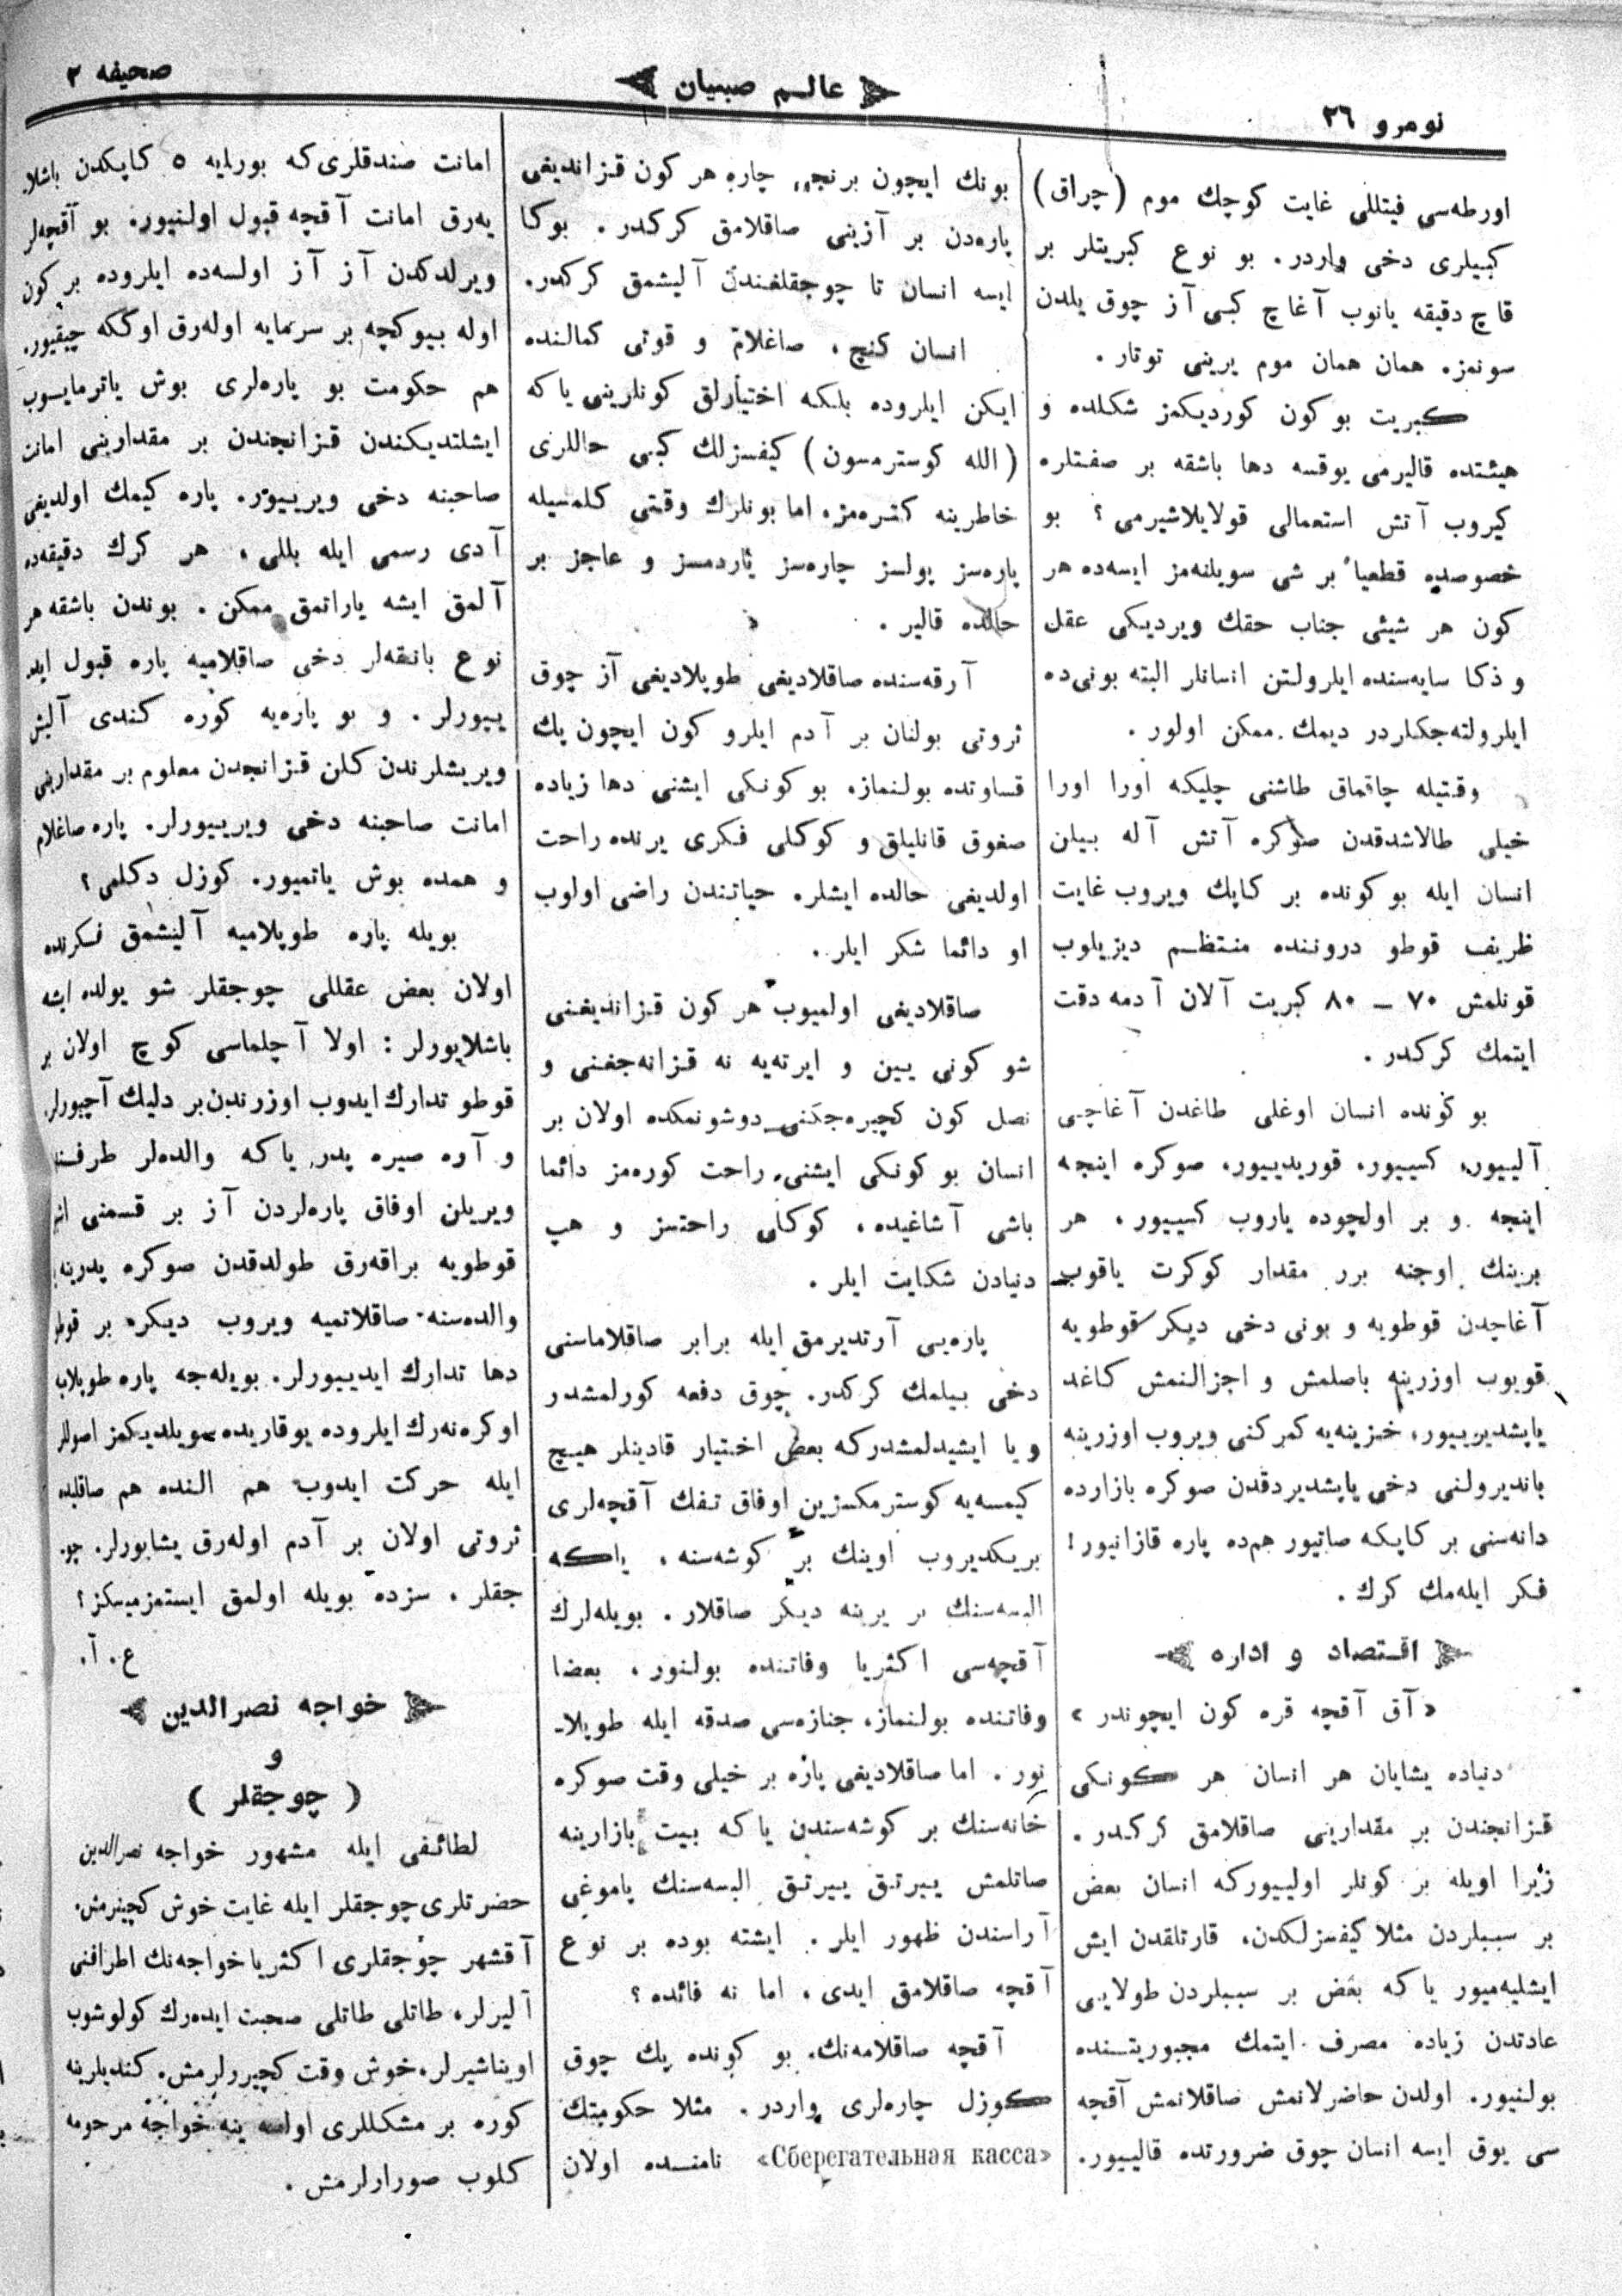 نومرو ٢٦
عالم صبیان
صحیفه ٣
اورطه‌سی فیتللی غایت كوچك موم (چراق)
كبیلری دخی واردر. بو نوع كبریتلر بر
قاچ دقیقه یانوب آغاچ كبی آز چوق یلدن
سونمز. همان همان موم یرینی توتار.
كبریت بو كون كوردیكمز شكلده و
هیئتده قالیرمی یوقسه دها باشقه بر صفتلره
كیروب آتش استعمالی قولایلاشیرمی؟ بو
خصوصده قطعیاً بر شی سویلنه‌مز ایسه‌ده هر
كون هر شیئی جناب حقك ویردیكی عقل
و ذكا سایه‌سنده ایلرولتن انسانلر البته بونی‌ده
ایلرولته‌جكلردر دیمك ممكن اولور.
وقتیله چاقماق طاشنی چلیكه اورا اورا
خیلی طالاشدقدن صوكره آتش آله بیلن
انسان ایله بو كونده بر كاپك ویروب غایت
ظریف قوطو دروننده منتظم دیزیلوب
قونلمش ٧٠ — ٨٠ كبریت آلان آدمه دقت
ایتمك كركدر.
بو كونده انسان اوغلی طاغدن آغاچی
آلییور، كسییور، قوریدییور، صوكره اینجه
اینجه و بر اولچوده یاروب كسییور، هر
برینك اوجنه برر مقدار كوكرت یاقوب
آغاجدن قوطویه و بونی دخی دیكر قوطویه
قویوب اوزرینه باصلمش و اجزالنمش كاغد
یاپشدیرییور، خزینه‌یه كمركنی ویروب اوزرینه
باندیرولنی دخی یاپشدیردقدن صوكره بازارده
دانه‌سنی بر كاپكه صاتیور هم‌ده پاره قازانیور!
فكر ایله‌مك كرك.
اقتصاد و اداره
«آق آقچه قره كون ایچوندر»
دنیاده یشایان هر انسان هر كونكی
قزانجندن بر مقدارینی صاقلامق كركدر.
زیرا اویله بر كونلر اولییوركه انسان بعض
بر سببلردن مثلا كیفسزلكدن، قارتلقدن ایش
ایشلیه‌میور یا كه بعض بر سببلردن طولایی
عادتدن زیاده مصرف ایتمك مجبوریتنده
بولنیور. اولدن حاضرلانمش صاقلانمش آقچه
سی یوق ایسه انسان چوق ضرورتده قالییور.
بونك ایچون برنجی چاره هر كون قزاندیغی
پاره‌دن بر آزینی صاقلامق كركدر. بوكا
ایسه انسان تا چوجقلغندن آلیشمق كركدر.
انسان كنچ، صاغلام و قوتی كمالنده
ایكن ایلروده بلكه اختیارلق كونلرینی یا كه
(الله كوسترمسون) كیفسزلك كبی حاللری
خاطرینه كتره‌مز. اما بونلرك وقتی كلمسیله
پاره‌سز یولسز چاره‌سز یاردمسز و عاجز بر
حالده قالیر.
آرقه‌سنده صاقلادیغی طوپلادیغی آز چوق
ثروتی بولنان بر آدم ایلرو كون ایچون پك
قساوتده بولنماز. بو كونكی ایشنی دها زیاده
صغوق قانلیلق و كوكلی فكری یرنده راحت
اولدیغی حالده ایشلر. حیاتندن راضی اولوب
او دائما شكر ایلر.
صاقلادیغی اولمیوب هر كون قزاندیغنی
شو كونی ییین و ایرته‌یه نه قزانه‌جغنی و
نصل كون كچیره‌جكنی دوشونمكده اولان بر
انسان بو كونكی ایشنی راحت كوره‌مز دائما
باشی آشاغیده، كوكلی راحتسز و هپ
دنیادن شكایت ایلر.
پاره‌یی آرتدیرمق ایله برابر صاقلاماسنی
دخی بیلمك كركدر. چوق دفعه كورلمشدر
و یا ایشیدلمشدركه بعض اختیار قادینلر هیچ
كیمسه‌یه كوسترمكسزین اوفاق تفك آقچه‌لری
بریكدیروب اوینك بر كوشه‌سنه، یاكه
البسه‌سنك بر یرینه دیكر صاقلار. بویله‌لرك
آقچه‌سی اكثریا وفاتنده بولنور، بعضا
وفاتنده بولنماز، جنازه‌سی صدقه ایله طوپلا-
نور. اما صاقلادیغی پاره بر خیلی وقت صوكره
خانه‌سنك بر كوشه‌سندن یا كه بیت بازارینه
صاتلمش ییرتق ییرتق البسه‌سنك پاموغی
آراسندن ظهور ایلر. ایشته بوده بر نوع
آقچه صاقلامق ایدی، اما نه فائده؟
آقچه صاقلامه‌نك، بو كونده پك چوق
كوزل چاره‌لری واردر. مثلا حكومتك
«Сберегательная касса» نامنده اولان
امانت صندقلری‌كه بورایه ٥ كاپكدن باشلا-
یه‌رق امانت آقچه قبول اولنیور. بو آقچه‌لر
ویرلدكدن آز آز اولسه‌ده ایلروده بر كون
اوله بیوكچه بر سرمایه اوله‌رق اوككه چیقیور.
هم حكومت بو پاره‌لری بوش یاترمایوب
ایشلتدیكندن قزانجندن بر مقدارینی امانت
صاحبنه دخی ویرییور. پاره كیمك اولدیغی
آدی رسمی ایله بللی، هر كرك دقیقه‌ده
آلمق ایشه یاراتمق ممكن. بوندن باشقه هر
نوع بانقه‌لر دخی صاقلامیه پاره قبول اید
ییورلر. و بو پاره‌یه كوره كندی آلیش
ویریشلرندن كلن قزانجدن معلوم بر مقدارینی
امانت صاحبنه دخی ویرییورلر. پاره صاغلام
و همده بوش یاتمیور. كوزل دكلمی؟
بویله پاره طوپلامیه آلیشمق فكرنده
اولان بعض عقللی چوجقلر شو یولده ایشه
باشلایورلر: اولا آچلماسی كوچ اولان بر
قوطو تدارك ایدوب اوزرندن بر دلیك آچیورلر.
و آره صیره پدر یا كه والده‌لر طرفند
ویریلن اوفاق پاره‌لردن آز بر قسمنی
قوطویه براقه‌رق طولدقدن صوكره پدرینه
والده‌سنه صاقلاتمیه ویروب دیكره بر قوطو
دها تدارك ایدییورلر. بویله‌جه پاره طوپلاب
اوكره‌نه‌رك ایلروده یوقاریده سویلدیكمز اصوللر
ایله حركت ایدوب هم النده هم صاقلیده
ثروتی اولان بر آدم اوله‌رق یشایورلر. چو-
جقلر، سزده بویله اولمق ایستمزمیسكز؟
ع. آ.
خواجه نصرالدین
و
(چوجقلر)
لطائفی ایله مشهور خواجه نصرالدین
حضرتلری چوجقلر ایله غایت خوش كچینرمش.
آقشهر چوجقلری اكثریا خواجه‌نك اطرافنی
آلیرلر، طاتلی طاتلی صحبت ایده‌رك كولوشوب
اویناشیرلر، خوش وقت كچیررلرمش. كندیلرینه
كوره بر مشكللری اولسه ینه خواجه مرحومه
كلوب صورارلرمش.